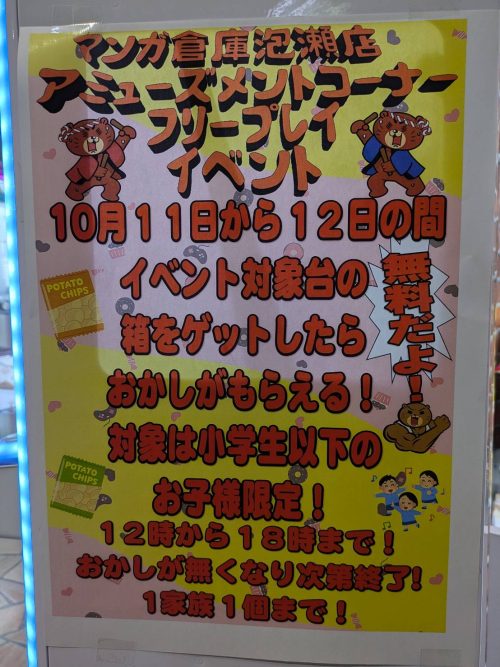 マンガ倉庫泡瀬店
アミューズメントコーナー
フリープレイ
イベント
10月11日から12日の間
イベント対象台の
箱をゲットしたら
おかしがもらえる!
無料だよ!
対象は小学生以下の
お子様限定!
12時から18時まで!
おかしが無くなり次第終了!
1家族1個まで!
POTATO
CHIPS
POTATO
CHIPS